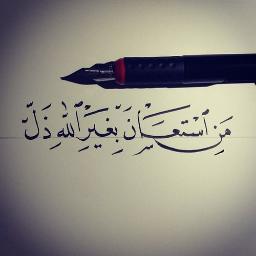 مَنِ ٱسْتَعَانَ بِغَيْرِ ٱللهِ ذَلَّ